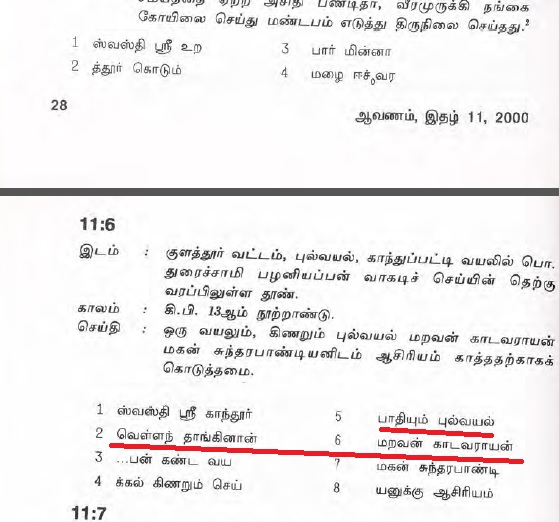 கோயிலை செய்து மண்டபம் எடுத்து திருநிலை செய்தது.²
1 ஸ்வஸ்தி ஸ்ரீ உற
2 த்தூர் கொடும்
3 பார் மின்னா
4 மழை ஈச்வர
28
ஆவணம், இதழ் 11, 2000
11:6
இடம் : குளத்தூர் வட்டம், புல்வயல், காந்துப்பட்டி வயலில் பொ.
துரைச்சாமி பழனியப்பன் வாகடிச் செய்யின் தெற்கு
வரப்பிலுள்ள தூண்.
காலம் : கி.பி. 13ஆம் நூற்றாண்டு.
செய்தி : ஒரு வயலும், கிணறும் புல்வயல் மறவன் காடவராயன்
மகன் சுந்தரபாண்டியனிடம் ஆசிரியம் காத்ததற்காகக்
கொடுத்தமை.
1 ஸ்வஸ்தி ஸ்ரீ காந்தூர்
2 வெள்ளந் தாங்கினான்
3 ...பன் கண்ட வய
4 க்கல் கிணறும் செய்
5 பாதியும் புல்வயல்
6 மறவன் காடவராயன்
7 மகன் சுந்தரபாண்டி
8 யனுக்கு ஆசிரியம்
11:7